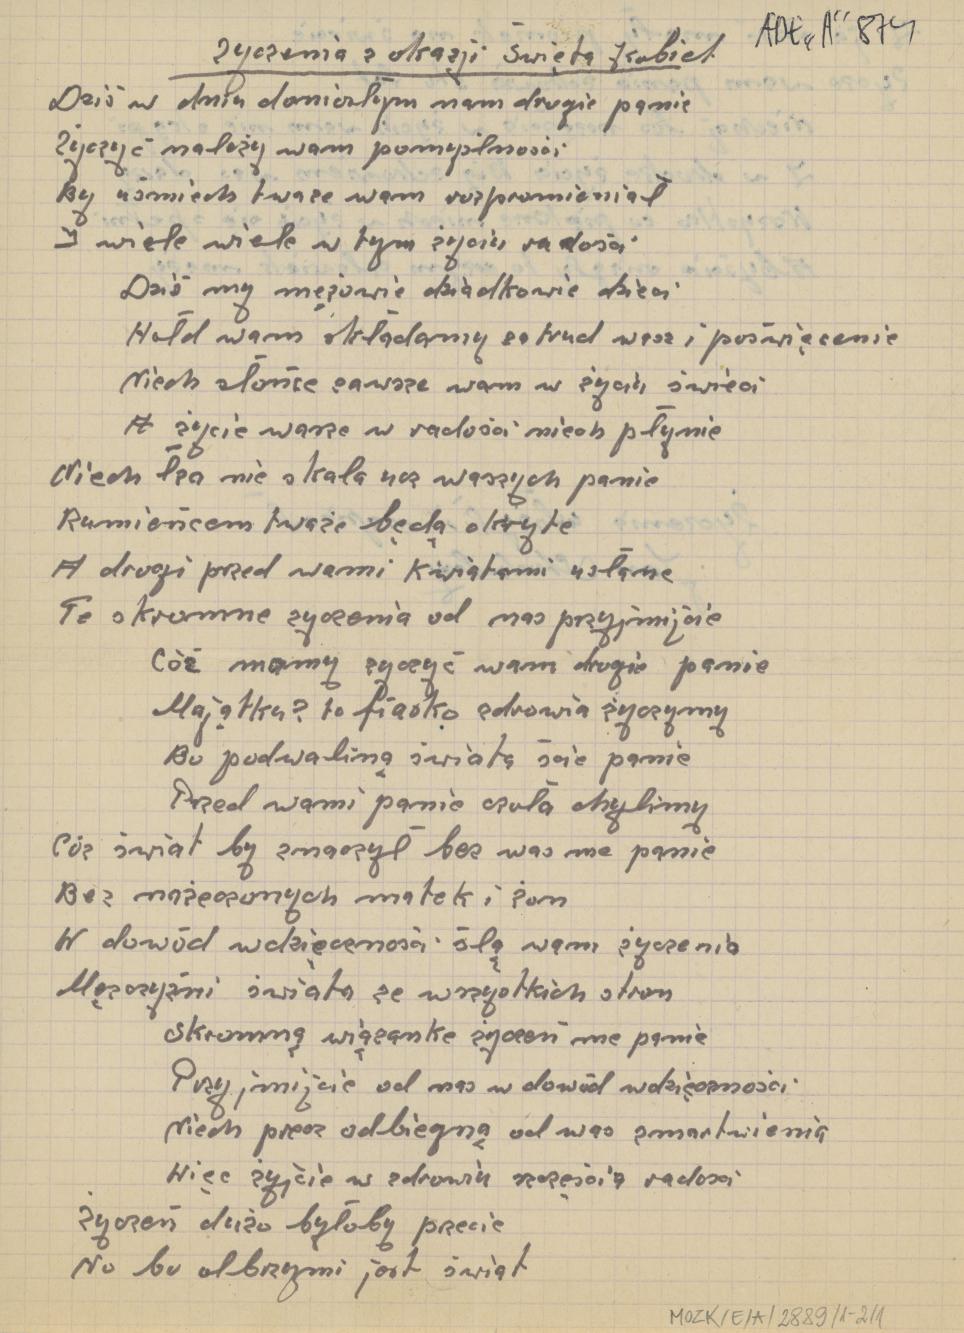 ADE „A" 874
Życzenia z okazji Święta Kobiet
Dziś w dniu doniosłym nam drogie panie
Życzyć należy wam pomyślności
By uśmiech twarze wam rozpromieniał
I wiele wiele w tym życiu radości
Dziś my mężowie dziadkowie dzieci
Hołd wam składamy za trud wasz i poświęcenie
Niech słońce zawsze wam w życiu świeci
A życie wasze w radości niech płynie
Niech łza nie skala ócz waszych panie
Rumieńcem tważe będą okryte
A drogi przed wami kwiatami usłane
Te skromne życzenia od nas przyjmijcie
Cóż mamy życzyć wam drogie panie
Majątku? to fiasko zdrowia życzymy
Bo podwaliną świata ście panie
Przed wami panie czoła chylimy
Cóż świat by znaczył bez was me panie
Bez nażeczonych matek i żon
W dowód wdzięczności ślą wam życzenia
Męszczyźni świata ze wszystkich stron
Skromną wiązanke życzeń me panie
Przyjmijcie od nas w dowód wdzięczności
Niech precz odbiegną od was zmartwienia
Więc żyjcie w zdrowiu szczęścia radosci
Życzeń dużo byłoby przecie
No bo olbrzymi jest świat
MOZK/E/A/2889/1-2/1